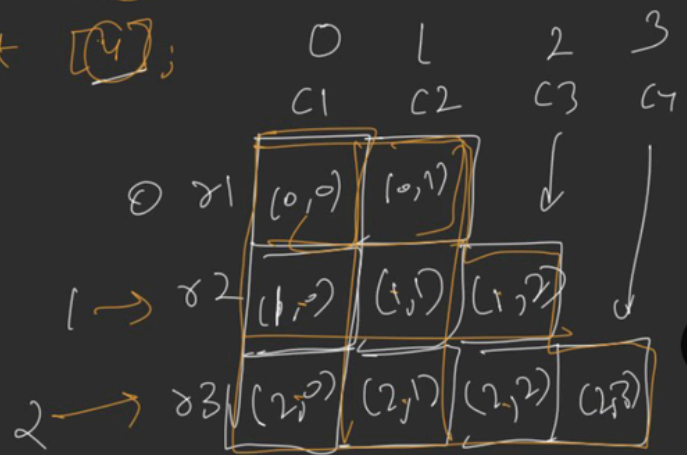 [4];
0 1 2 3
C1 C2 C3 C4
0 r1 (0,0) (0,1)
1 → r2 (1,0) (1,1) (1,2)
2 → r3 (2,0) (2,1) (2,2) (2,3)